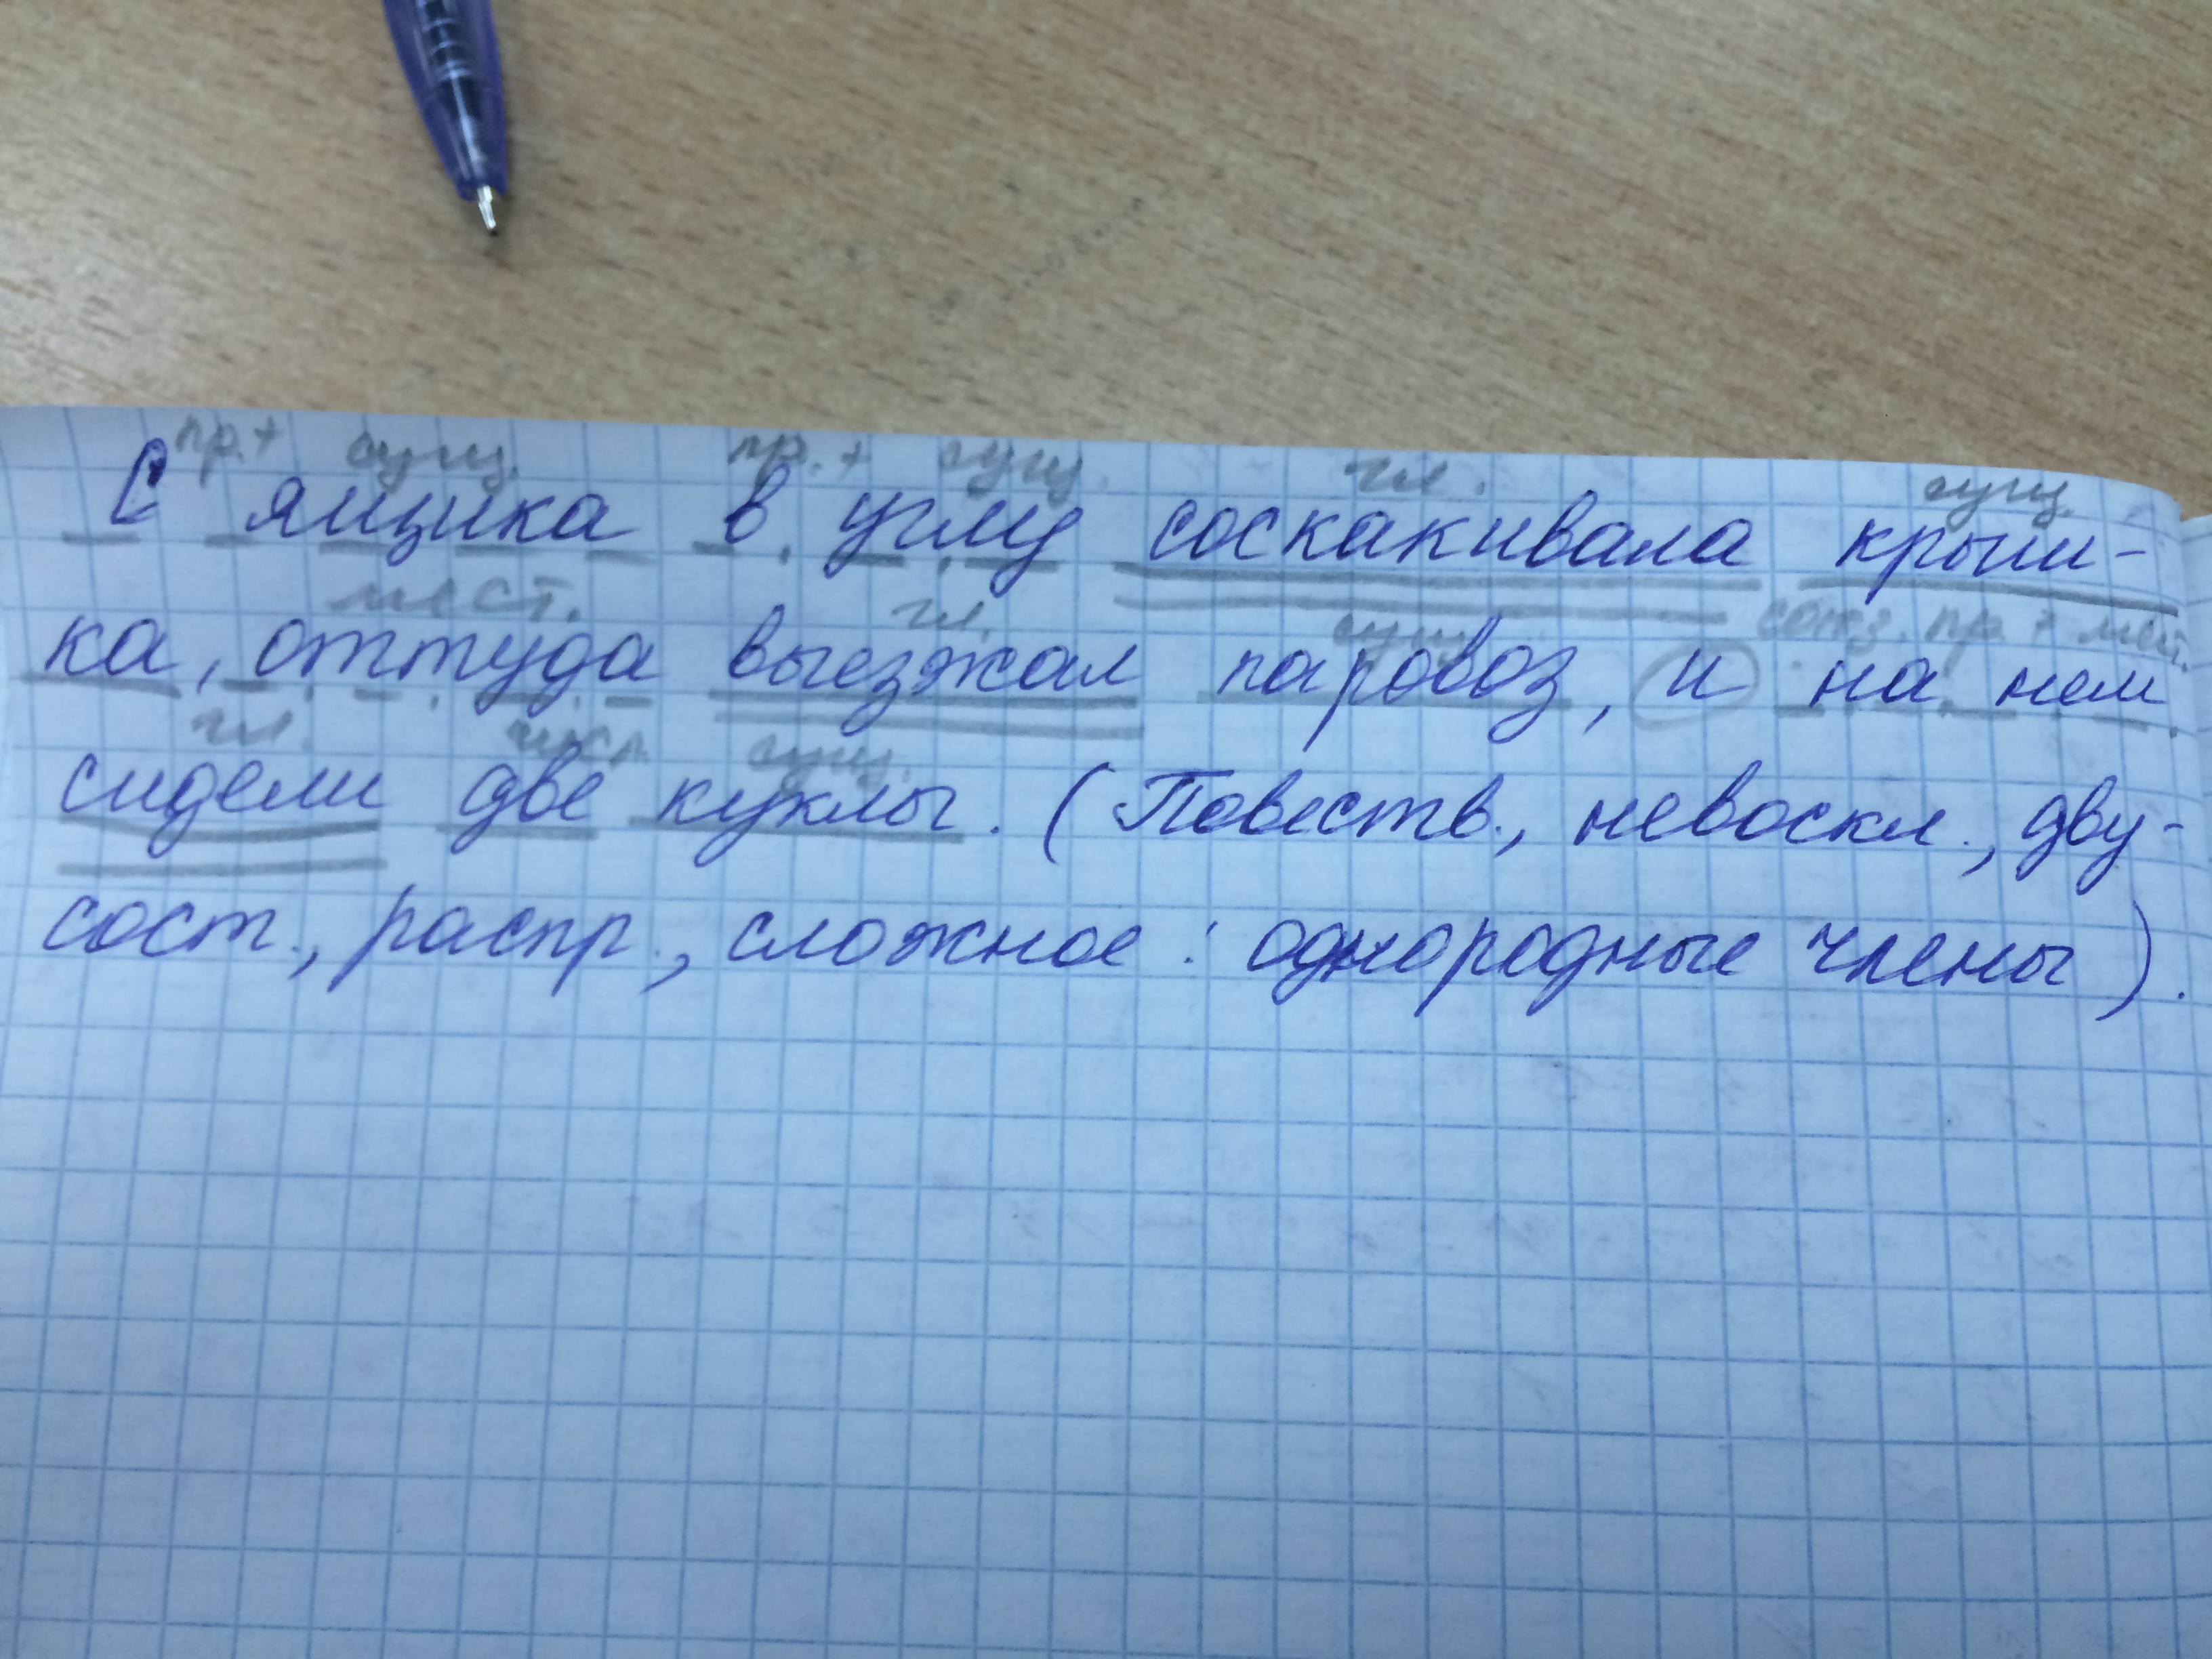 пр.+ сущ. пр.+ сущ. гл. сущ.
С ящика в углу соскакивала крыш-
мест. гл. сущ. союз. пр.+ мест.
ка, оттуда выезжал паровоз, и на нем
гл. числ. сущ.
сидели две куклы. (Повеств., невоскл., дву-
сост., распр., сложное: однородные члены).